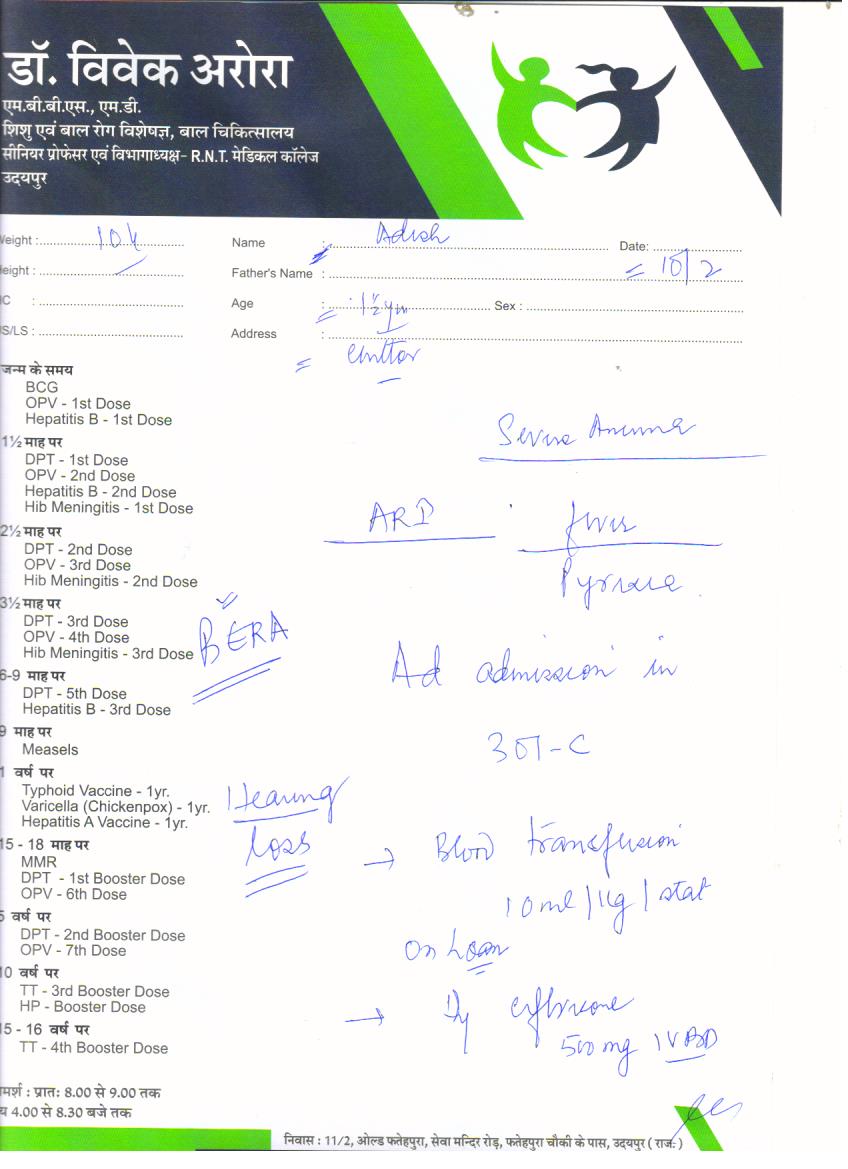 डॉ. विवेक अरोरा
एम.बी.बी.एस., एम.डी.
शिशु एवं बाल रोग विशेषज्ञ, बाल चिकित्सालय
सीनियर प्रोफेसर एवं विभागाध्यक्ष- R.N.T. मेडिकल कॉलेज
उदयपुर
Weight : 10
Name : Adish
Date: 10/2
eight :
Father's Name :
C :
Age : 1½ yrs
Sex :
S/LS :
Address :
जन्म के समय
BCG
OPV - 1st Dose
Hepatitis B - 1st Dose
1½ माह पर
DPT - 1st Dose
OPV - 2nd Dose
Hepatitis B - 2nd Dose
Hib Meningitis - 1st Dose
2½ माह पर
DPT - 2nd Dose
OPV - 3rd Dose
Hib Meningitis - 2nd Dose
3½ माह पर
DPT - 3rd Dose
OPV - 4th Dose
Hib Meningitis - 3rd Dose
6-9 माह पर
DPT - 5th Dose
Hepatitis B - 3rd Dose
9 माह पर
Measels
1 वर्ष पर
Typhoid Vaccine - 1yr.
Varicella (Chickenpox) - 1yr.
Hepatitis A Vaccine - 1yr.
15 - 18 माह पर
MMR
DPT - 1st Booster Dose
OPV - 6th Dose
5 वर्ष पर
DPT - 2nd Booster Dose
OPV - 7th Dose
10 वर्ष पर
TT - 3rd Booster Dose
HP - Booster Dose
15 - 16 वर्ष पर
TT - 4th Booster Dose
BERA
Hearing
loss
Severe Anemia
ARI
fever
Ad admission in
301-C
→ Blood transfusion
10 ml / kg / stat
On Loan
→
500 mg IV BD
मर्श : प्रातः 8.00 से 9.00 तक
य 4.00 से 8.30 बजे तक
निवास : 11/2, ओल्ड फतेहपुरा, सेवा मन्दिर रोड़, फतेहपुरा चौकी के पास, उदयपुर ( राज. )